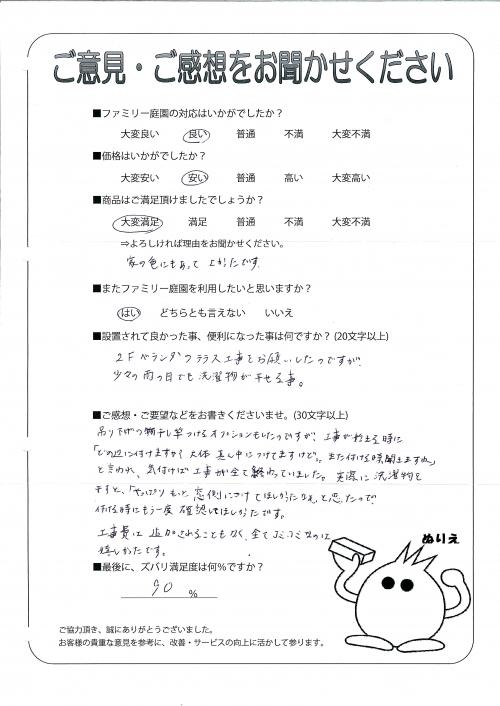 ご意見・ご感想をお聞かせください
■ファミリー庭園の対応はいかがでしたか？
大変良い 良い 普通 不満 大変不満
■価格はいかがでしたか？
大変安い 安い 普通 高い 大変高い
■商品はご満足頂けましたでしょうか？
大変満足 満足 普通 不満 大変不満
⇒よろしければ理由をお聞かせください。
家の色にもあって よかったです。
■またファミリー庭園を利用したいと思いますか？
はい どちらとも言えない いいえ
■設置されて良かった事、便利になった事は何ですか？(20文字以上)
2Fベランダのテラス工事をお願いしたのですが、
少々の雨の日でも洗濯物が干せる事。
■ご感想・ご要望などをお書きくださいませ。(30文字以上)
吊り下げの物干し竿つけるオプションもしたのですが、工事が始まる時に
「どの辺に付けますか？大体 真ん中につけてますけど。また付ける時聞きますね」
と言われ、気付けば工事が全て終わっていました。実際に洗濯物を
干すと、「やっぱりもっと窓側につけてほしかったなぁ」と思ったので、
付ける時にもう一度 確認してほしかったです。
工事費は 追加されることもなく、全てコミコミなのは
嬉しかったです。
■最後に、ズバリ満足度は何%ですか？
90 %
ぬりえ
ご協力頂き、誠にありがとうございました。
お客様の貴重な意見を参考に、改善・サービスの向上に活かして参ります。